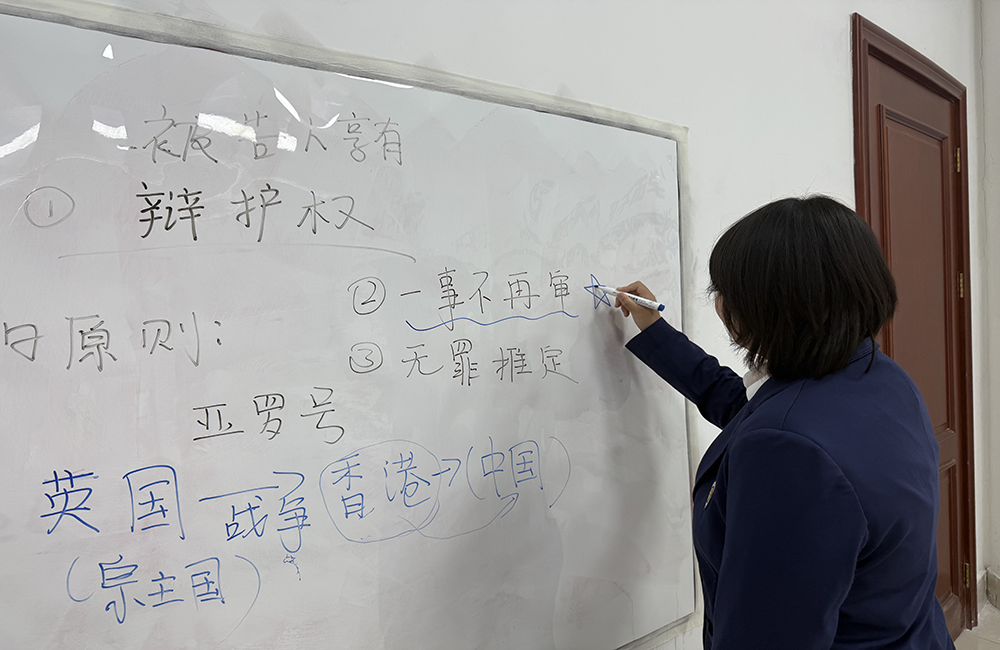 被告人享有
① 辩护权
② 一事不再审 ☆
原则:
③ 无罪推定
亚罗号
英国 → 战争 香港 → (中国)
(宗主国)